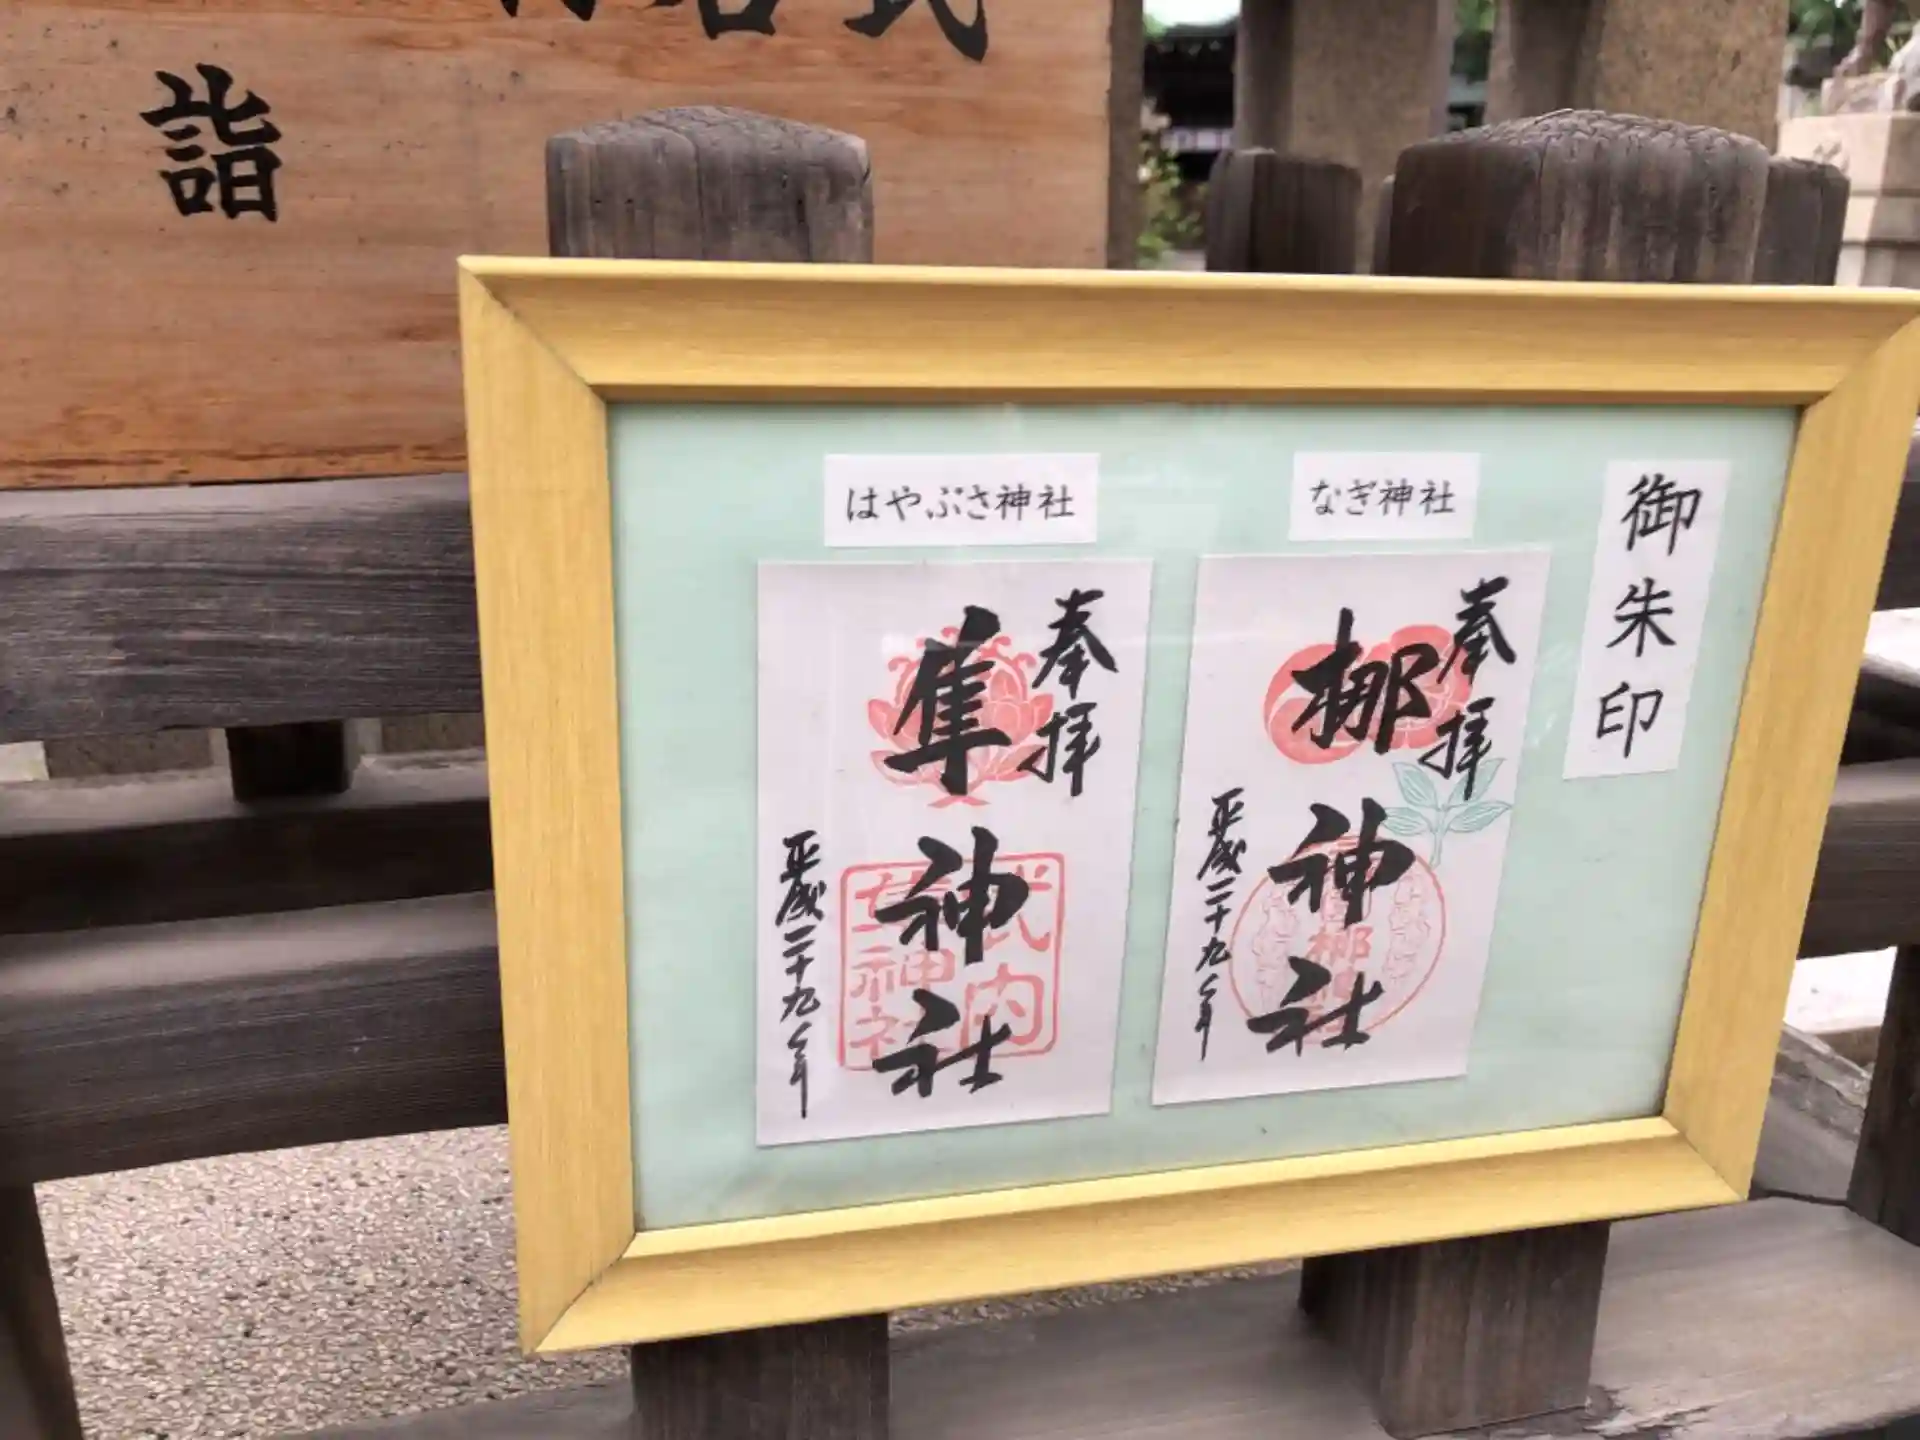 詣
御朱印
なぎ神社
奉拝
梛神社
平成二十九年
はやぶさ神社
奉拝
隼神社
平成二十九年
式内
隼神社